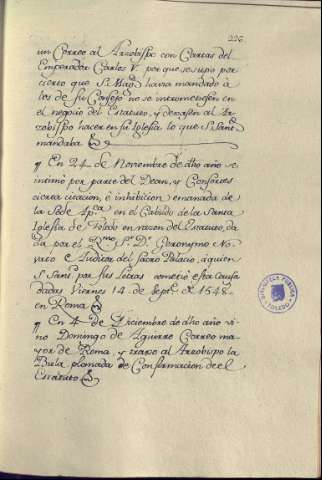 226
un Correo al Arzobispo con Cartas del
Emperador Carlos V. por que se supo por
cierto que S. Magd. havia mandado à
los de su Consejo no se intrometiesen en
el negocio del Estatuto, y dexasen al Ar-
zobispo hacer en su Iglesia lo que S. Santd.
mandaba
¶ En 24 de Noviembre de dho año se
intimò por parte del Dean, y Consortes
cierta citacion, è inhibicion emanada de
la Sede Apca. en el Cabildo de la Santa
Iglesia de Toledo en razon del Estatuto, da-
da por el Rmo. S. D. Geronymo No-
vato è Auditor del Sacro Palacio, à quien
S. Santd. por sus Letras cometiò esta Causa
dadas Viernes 14 de Septe. de 1548
en Roma
¶ En 4 de Diciembre de dho año vi-
no Domingo de Aguirre Correo ma-
yor de Roma, y traxo al Arzobispo la
Bula plomada de Confirmacion de el
Estatuto
BIBLIOTECA PUBLICA
TOLEDO